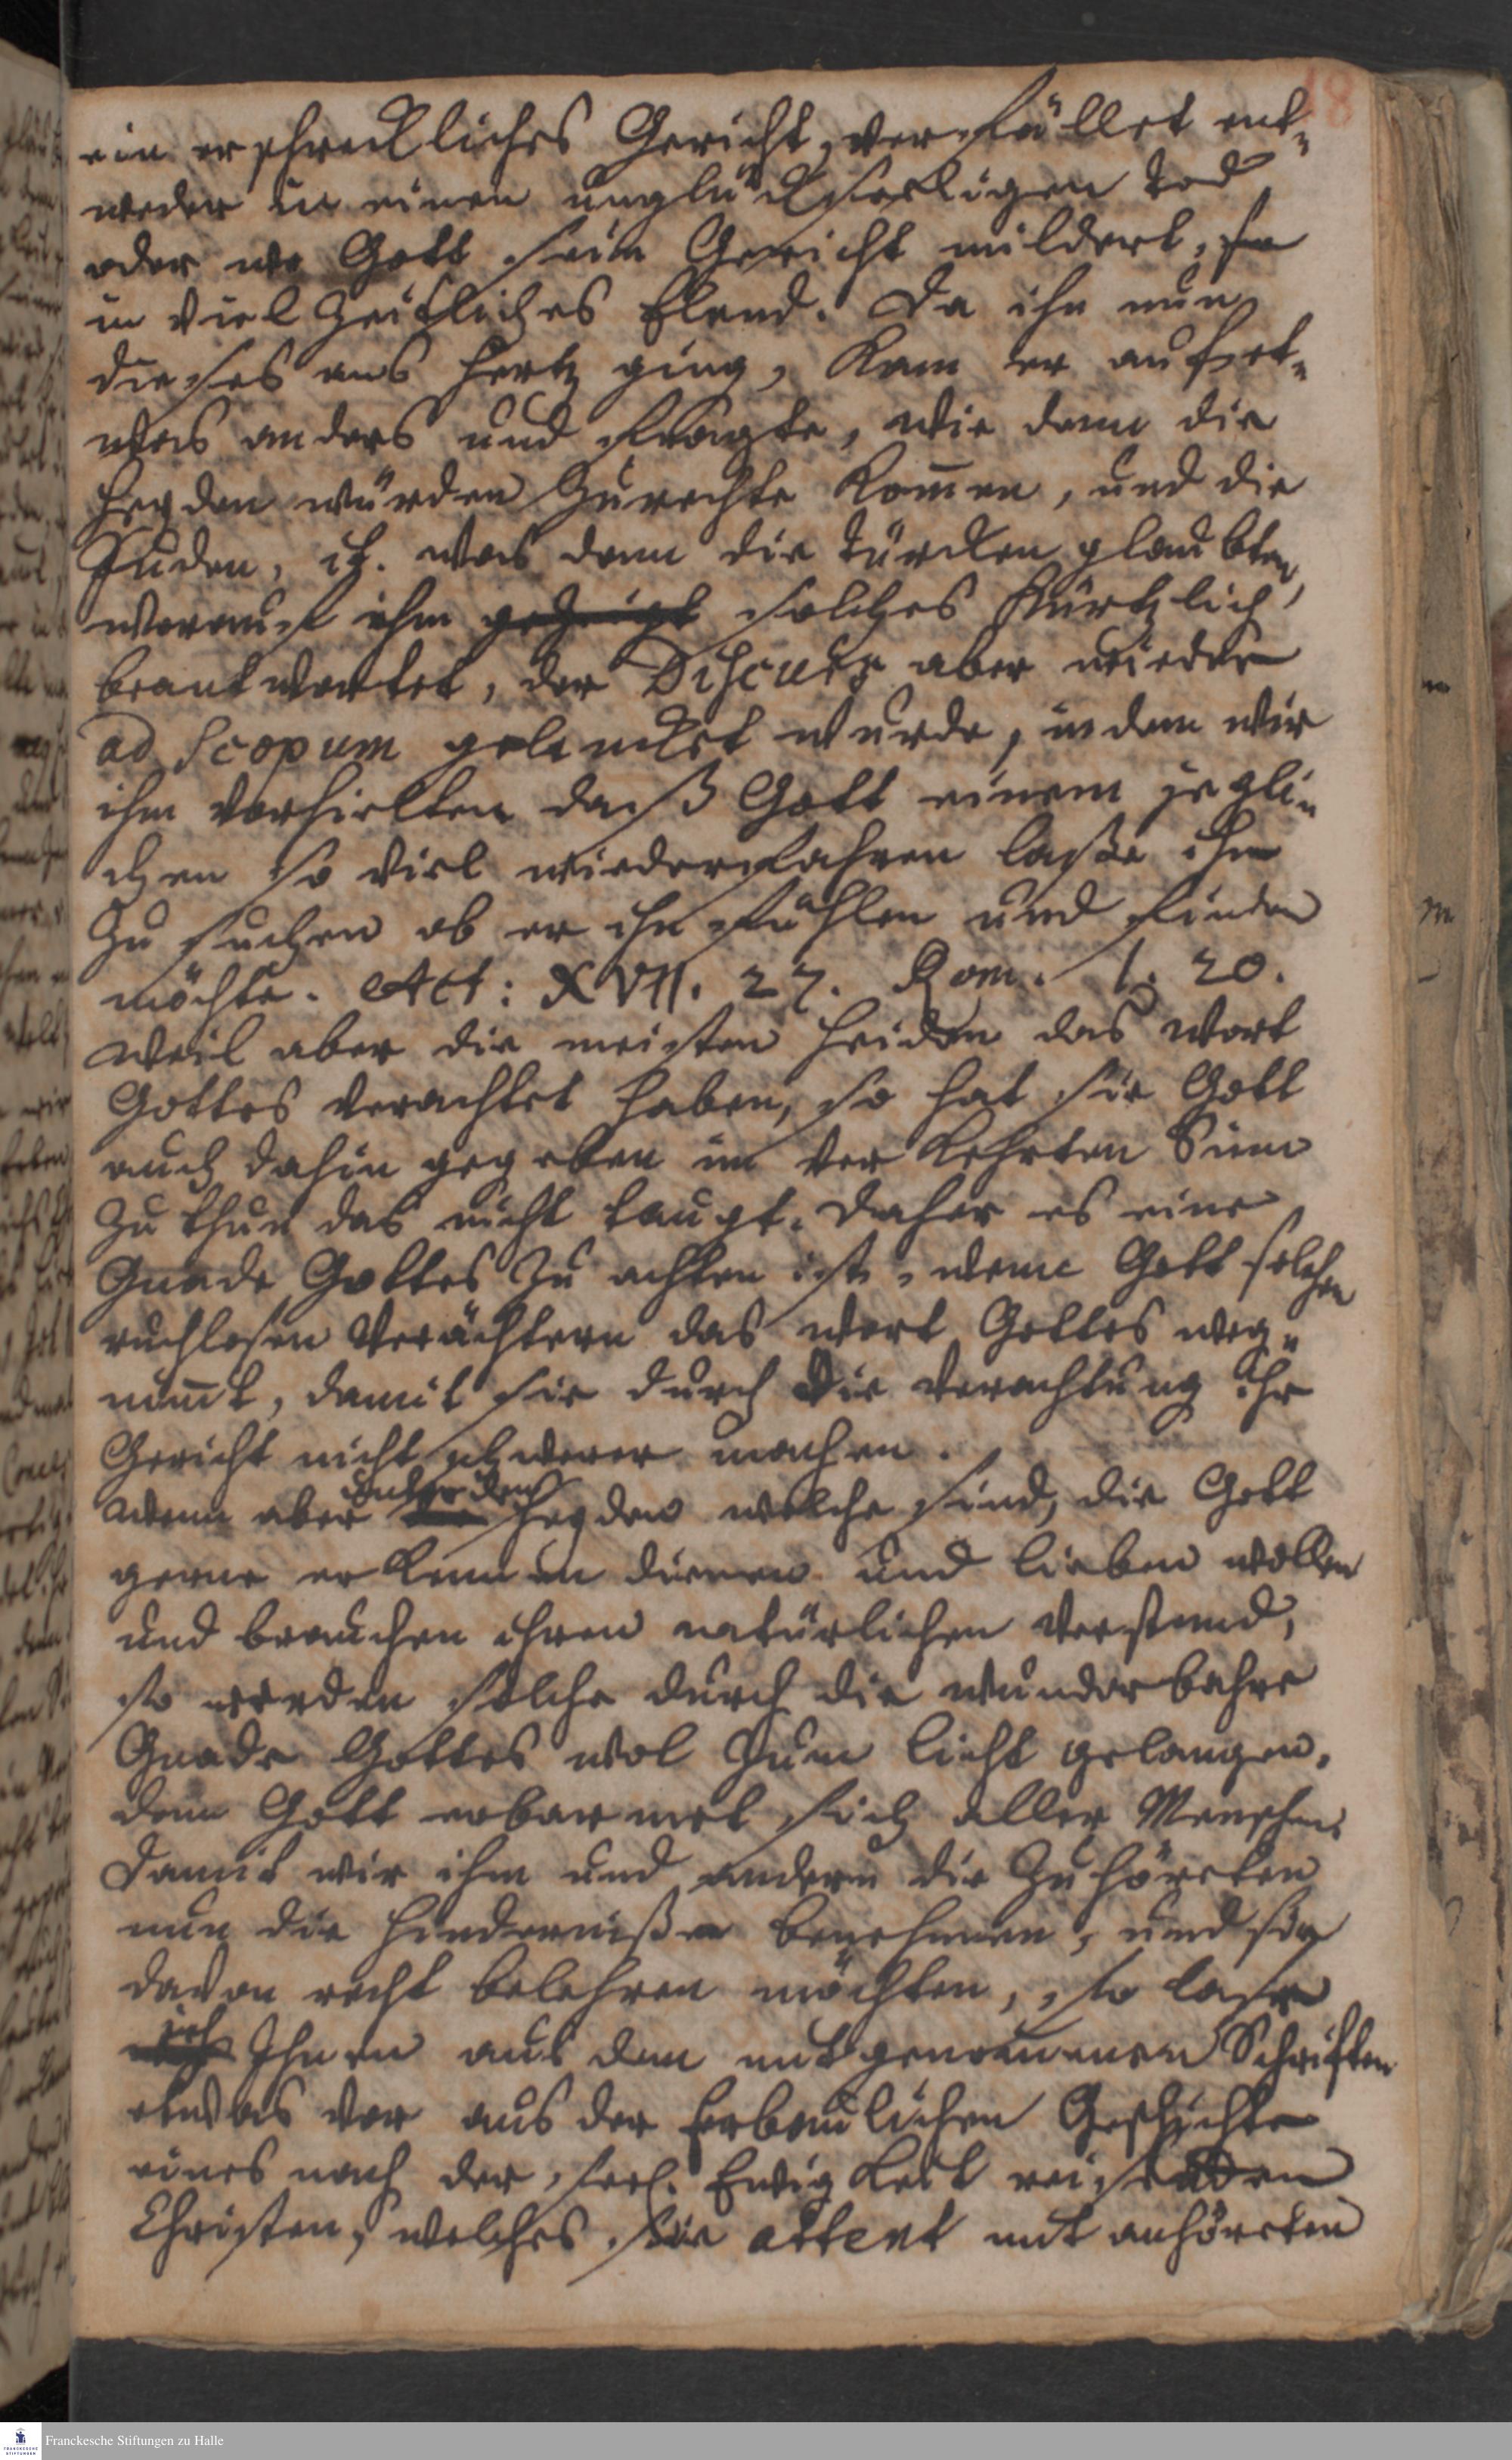 18
ein erschreckliches Gericht, verfället ent-
weder in einen unglückseeligen Tod
oder wo Gott sein Gericht mildert, so
in viel zeitliches Elend. Da ihn nun
dieses ans Hertz ging, kam er auf et-
was anders und fragte, wie denn die
Heyden würden zurechte kommen, und die
Juden, it. was denn die Türcken glaubten,
worauf ihm solches kürtzlich
beantwortet, der Discurs aber wieder
ad Scopum gelencket wurde, indem wir
ihm vorhielten daß Gott einem jegli-
chen so viel wiederfahren laße ihn
zu suchen ob er ihn fühlen und finden
möchte. Act: XVII. 27. Rom. 1. 20.
Weil aber die meisten Heiden das Wort
Gottes verachtet haben, so hat sie Gott
auch dahin gegeben in verkehrten Sinn
zu thun das nicht taugt. Daher es eine
Gnade Gottes zu achten ist, wenn Gott solchen
ruchlosen Verächtern das Wort Gottes weg-
nimmt, damit sie durch die Verachtung ihr
Gericht nicht schwerer machen.
Wenn aber unter den Heyden welche sind, die Gott
gerne erkennen dienen und lieben wollen
und brauchen ihren natürlichen Verstand,
so werden solche durch die wunderbahre
Gnade Gottes wol zum Licht gelangen,
denn Gott erbarmet sich aller Menschen.
Damit wir ihm und andern die zuhöreten
nun die Hinderniße benehmen, und sie
davon recht belehren möchten, so lase
ich Ihnen aus den mitgenommenen Schriften
etwas vor aus der Erbaulichen Geschichte
eines nach der seel. Ewigkeit reisenden
Christen, welches sie attent mit anhöreten
Franckesche Stiftungen zu Halle